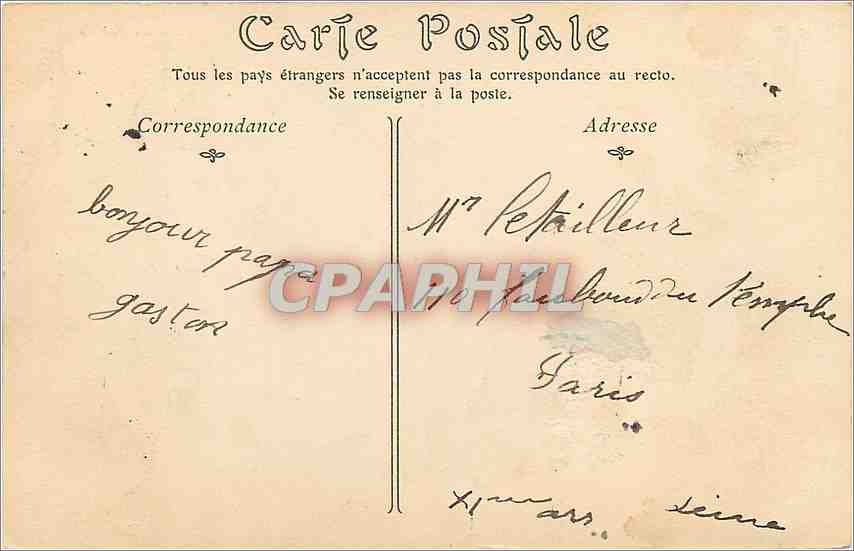 Carte Postale
Tous les pays étrangers n'acceptent pas la correspondance au recto.
Se renseigner à la poste.
Correspondance
Adresse
bonjour papa
gaston
Mr Letailleur
110 faubourd du Temple
Paris
XIme arr.. Seine
CPAPHIL